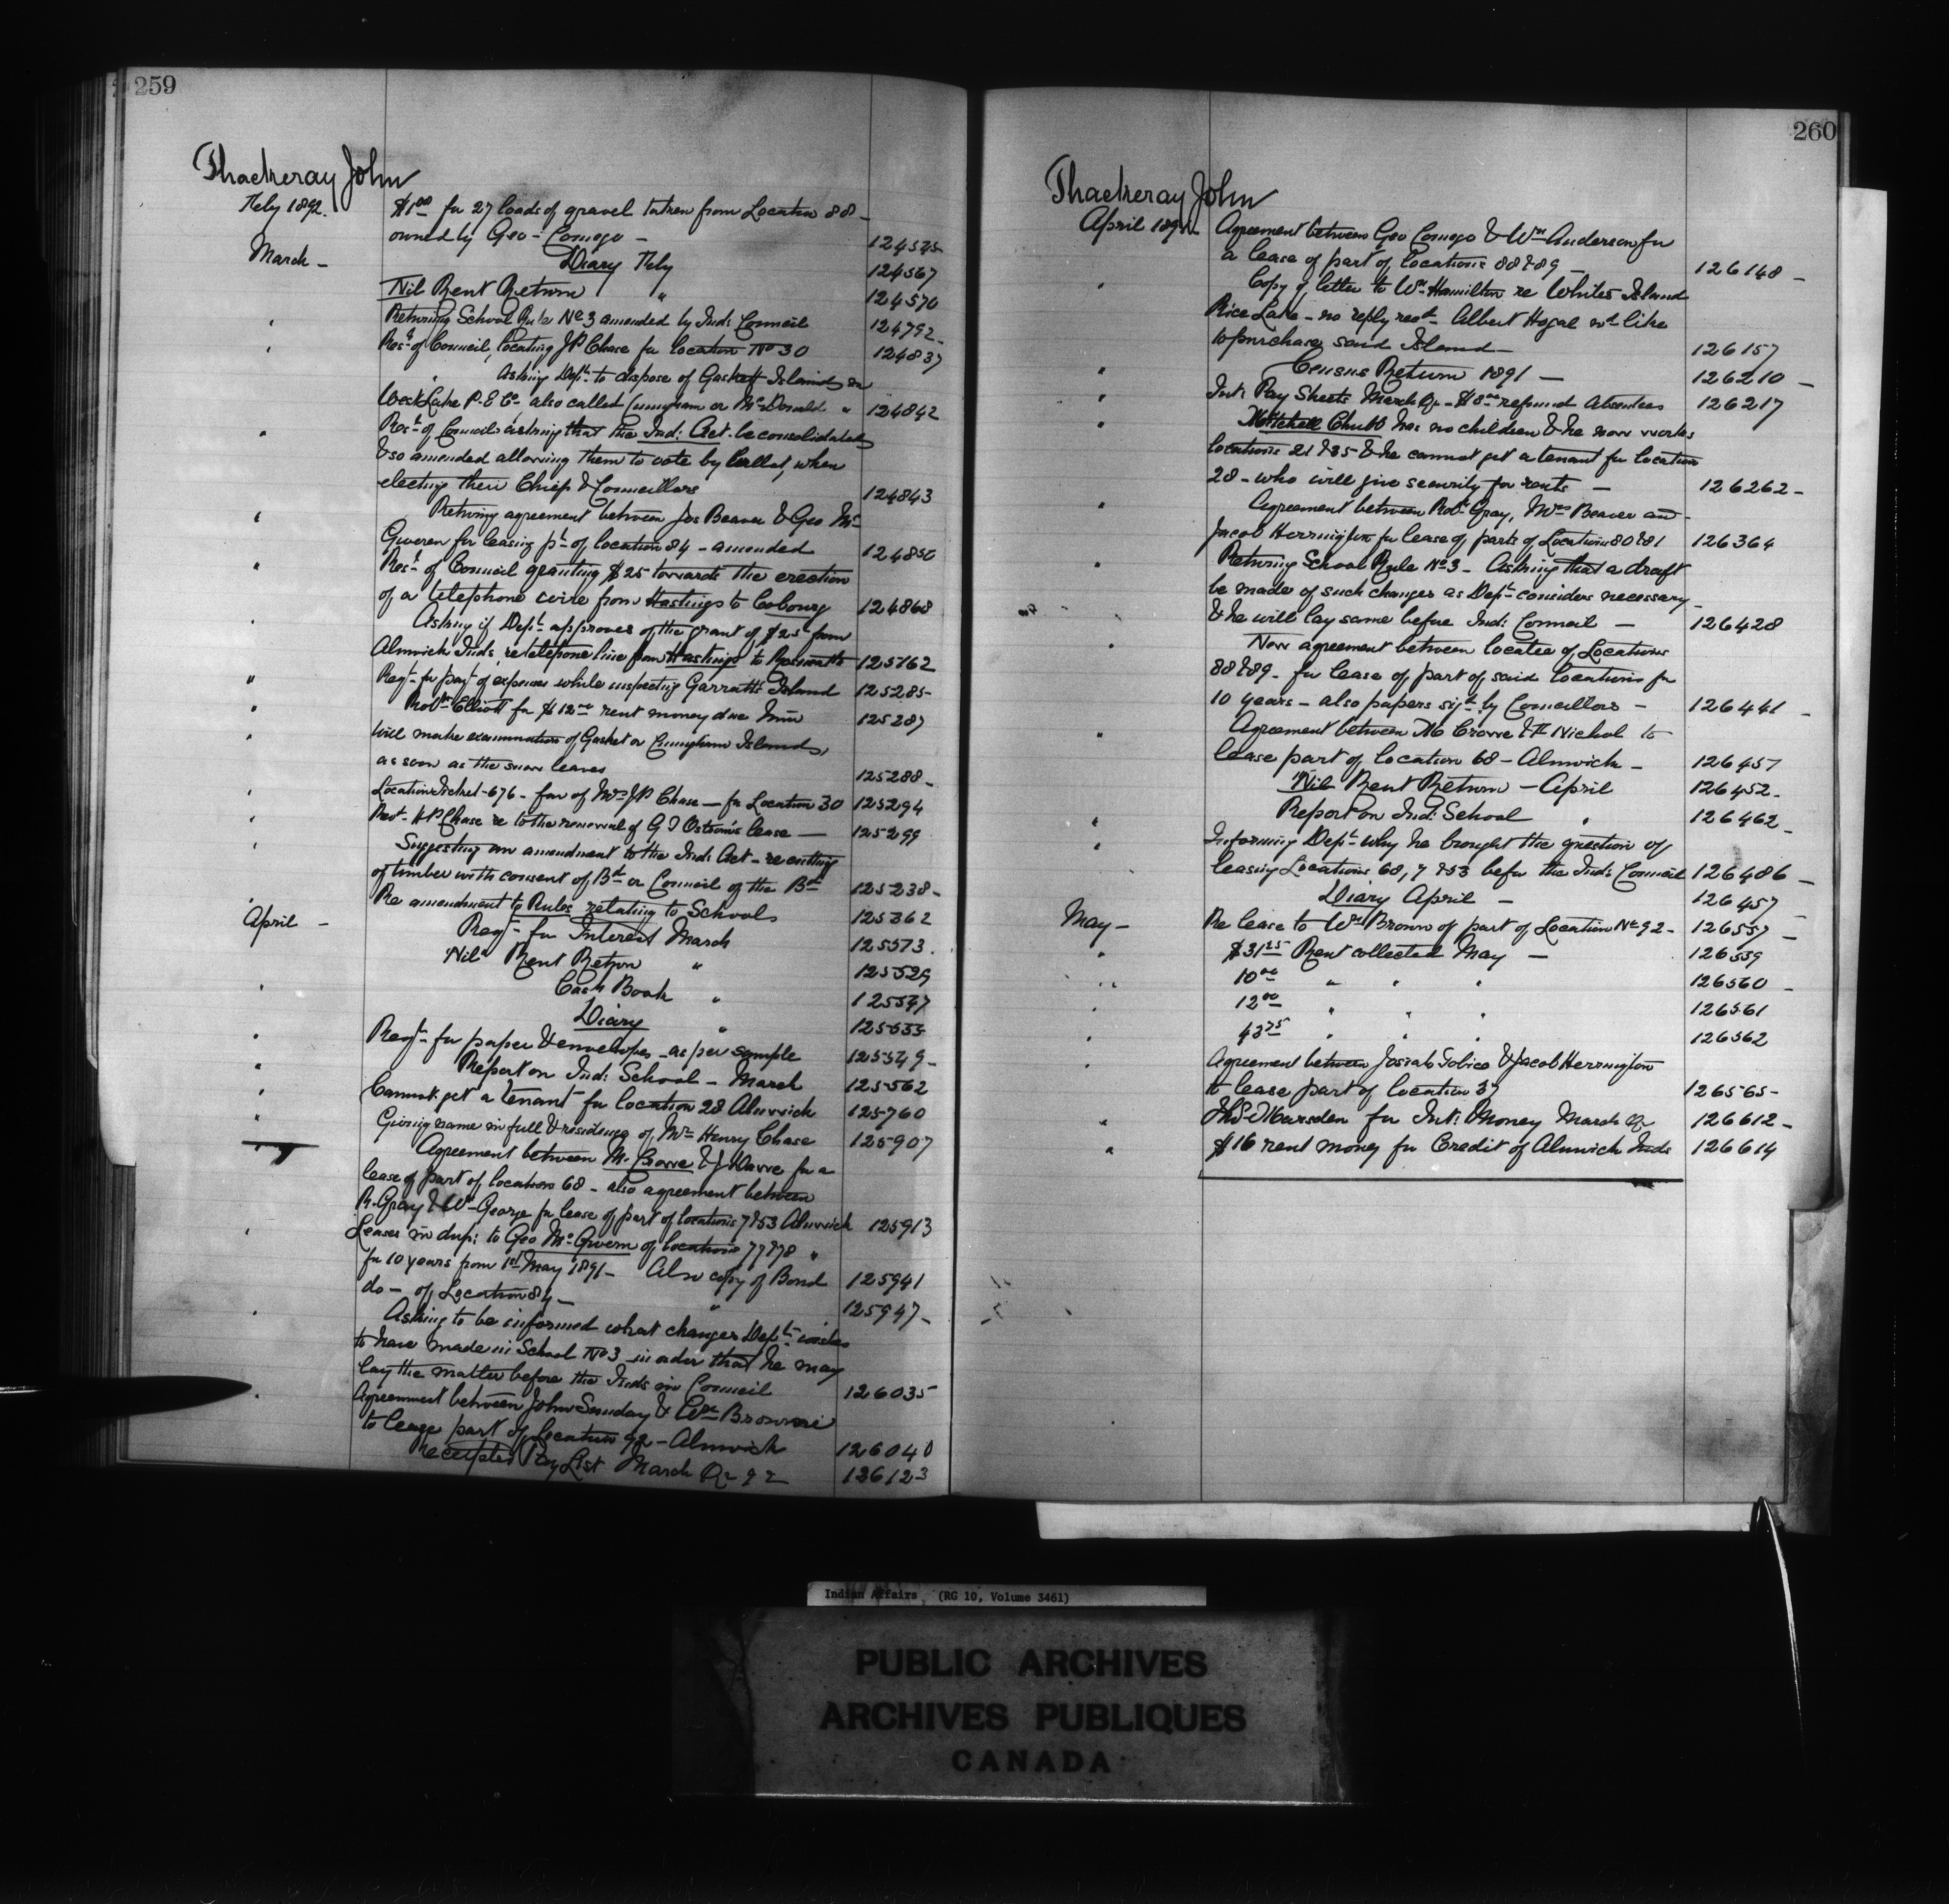 259
Thackeray John
Feby 1892. $1.00 for 27 loads of gravel taken from Location 88 -
owned by Geo - Comego - 124525
March - Diary Feby 124567
Nil Rent Return " 124570
" Returning School Rule No 3 amended by Ind: Council 124792
" Rest. of Council, locating J P Chase for location No 30 124837
" Asking Dept. to dispose of Gaskett Islands in
West Lake P. E Co - also called Cunningham or McDonald " 124842
" Rest. of Council asking that the Ind: Act. be consolidated
& so amended allowing them to vote by ballot, when
electing their Chief & Councillors 124843
" Returng agreement between Jos Beaver & Geo Mc
Gweren for leasing pt of location 84 - amended 124850
" Rest. of Council granting $25 towards the erection
of a telephone wire from Hastings to Cobourg 124868
" Asking if Dept. approves of the grant of $25 from
Alnwick Inds, re telephone line from Hastings to 125162
" Reqt. for payt. of expenses while inspecting Garratt's Island 125285
" Robt. Elliott for $12.00 rent money due him 125287
" Will make examination of Gasket or Cunningham Islands,
as soon as the snow leaves 125288 -
" Location Ticket - 676 - fav of Mrs J P Chase - for Location 30 125294
" Revt. H P Chase re to the renewal of G I Ostrom's lease - 125299
" Suggesting an amendment to the Ind: Act - re cutting
of timber with consent of Bd. or Council of the Bd. 125238 -
" Re amendment to Rules relating to Schools 125362
April - Reqt. for Interest March 125573.
Nil Rent Return " 125529
" Cash Book " 125547
Diary " 125533
" Reqt. for paper & envelopes - as per sample 125549 -
" Report on Ind: School - March 125562
" Cannot get a tenant for location 28 Alnwick 125760
" Giving name in full & residence of Mrs Henry Chase 125907
Agreement between M. Crowe & J Dawe for a
lease of part of location 68 - also agreement between
R. Gray & Wm. George for lease of part of locations 7 & 53 Alnwick 125913
" Leases in dup: to Geo McGwern of locations 77 & 78 "
for 10 years from 1st May 1891 - Also copy of Bond 125941
do - of Location 84 - " 125947 -
" Asking to be informed what changes Dept. wishes
to have made in School No 3 - in order that he may
lay the matter before the Inds in Council 126035
" Agreement between John Sunday & Wm Browne
to lease part of location 92 - Alnwick 126040
Receipted Pay List March Qr 92 126123
260
Thackeray John
April 1892 Agreement between Geo Comego & Wm Anderson for
a lease of part of locations 88 & 89 - 126148 -
" Copy of letter to Wm Hamilton re Whites Island
Rice Lake - no reply recd. Albert Hogal wd. like
to purchase said Island - 126157
" Census Return 1891 - 126210 -
" Int: Pay Sheets March Qr - $8.00 refund Absentees 126217
" Mitchell Chubb has no children & he now works
locations 21 & 35 & he cannot get a tenant for location
28 - who will give security for rents - 126262 -
" Agreement between Robt. Gray, Mrs Beaver and
Jacob Herrington for lease of parts of Locations 80 & 81 126364
" Returning School Rule No 3 - Asking that a draft
be made of such changes as Dept. considers necessary
& he will lay same before Ind: Council - 126428
" New agreement between locatee of Locations
88 & 89 - for lease of part of said locations for
10 years - also papers sigd. by Councillors - 126441 -
" Agreement between M Crowe & H Nichol to
lease part of location 68 - Alnwick - 126457
Nil Rent Return - April 126452 -
" Report on Ind: School " 126462 -
" Informing Dept. why he brought the question of
leasing Locations 68, 7 & 53 before the Ind: Council 126486 -
Diary April - 126457
May - Re lease to Wm Brown of part of Location No 92 - 126537 -
" $31.25 Rent collected May - 126559
" 10.00 " " " 126560 -
" 12.00 " " " 126561
" 43.75 " " " 126562
" Agreement between Josiah Tobico & Jacob Herrington
to lease part of location 37 126565 -
" Thos. Marsden for Int: Money March Qr 126612 -
" $16 rent money for Credit of Alnwick Inds 126614
Indian Affairs (RG 10, Volume 3461)
PUBLIC ARCHIVES
ARCHIVES PUBLIQUES
CANADA